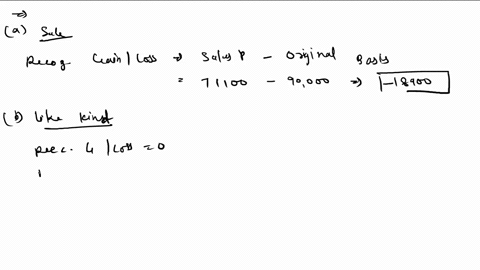 ⇒
(a) Sale
Recog Gain/Loss ⇒ Sales P - Original Basis
= 71100 - 90,000 ⇒ -18900
(b) Like kind
Rec. G/Loss = 0